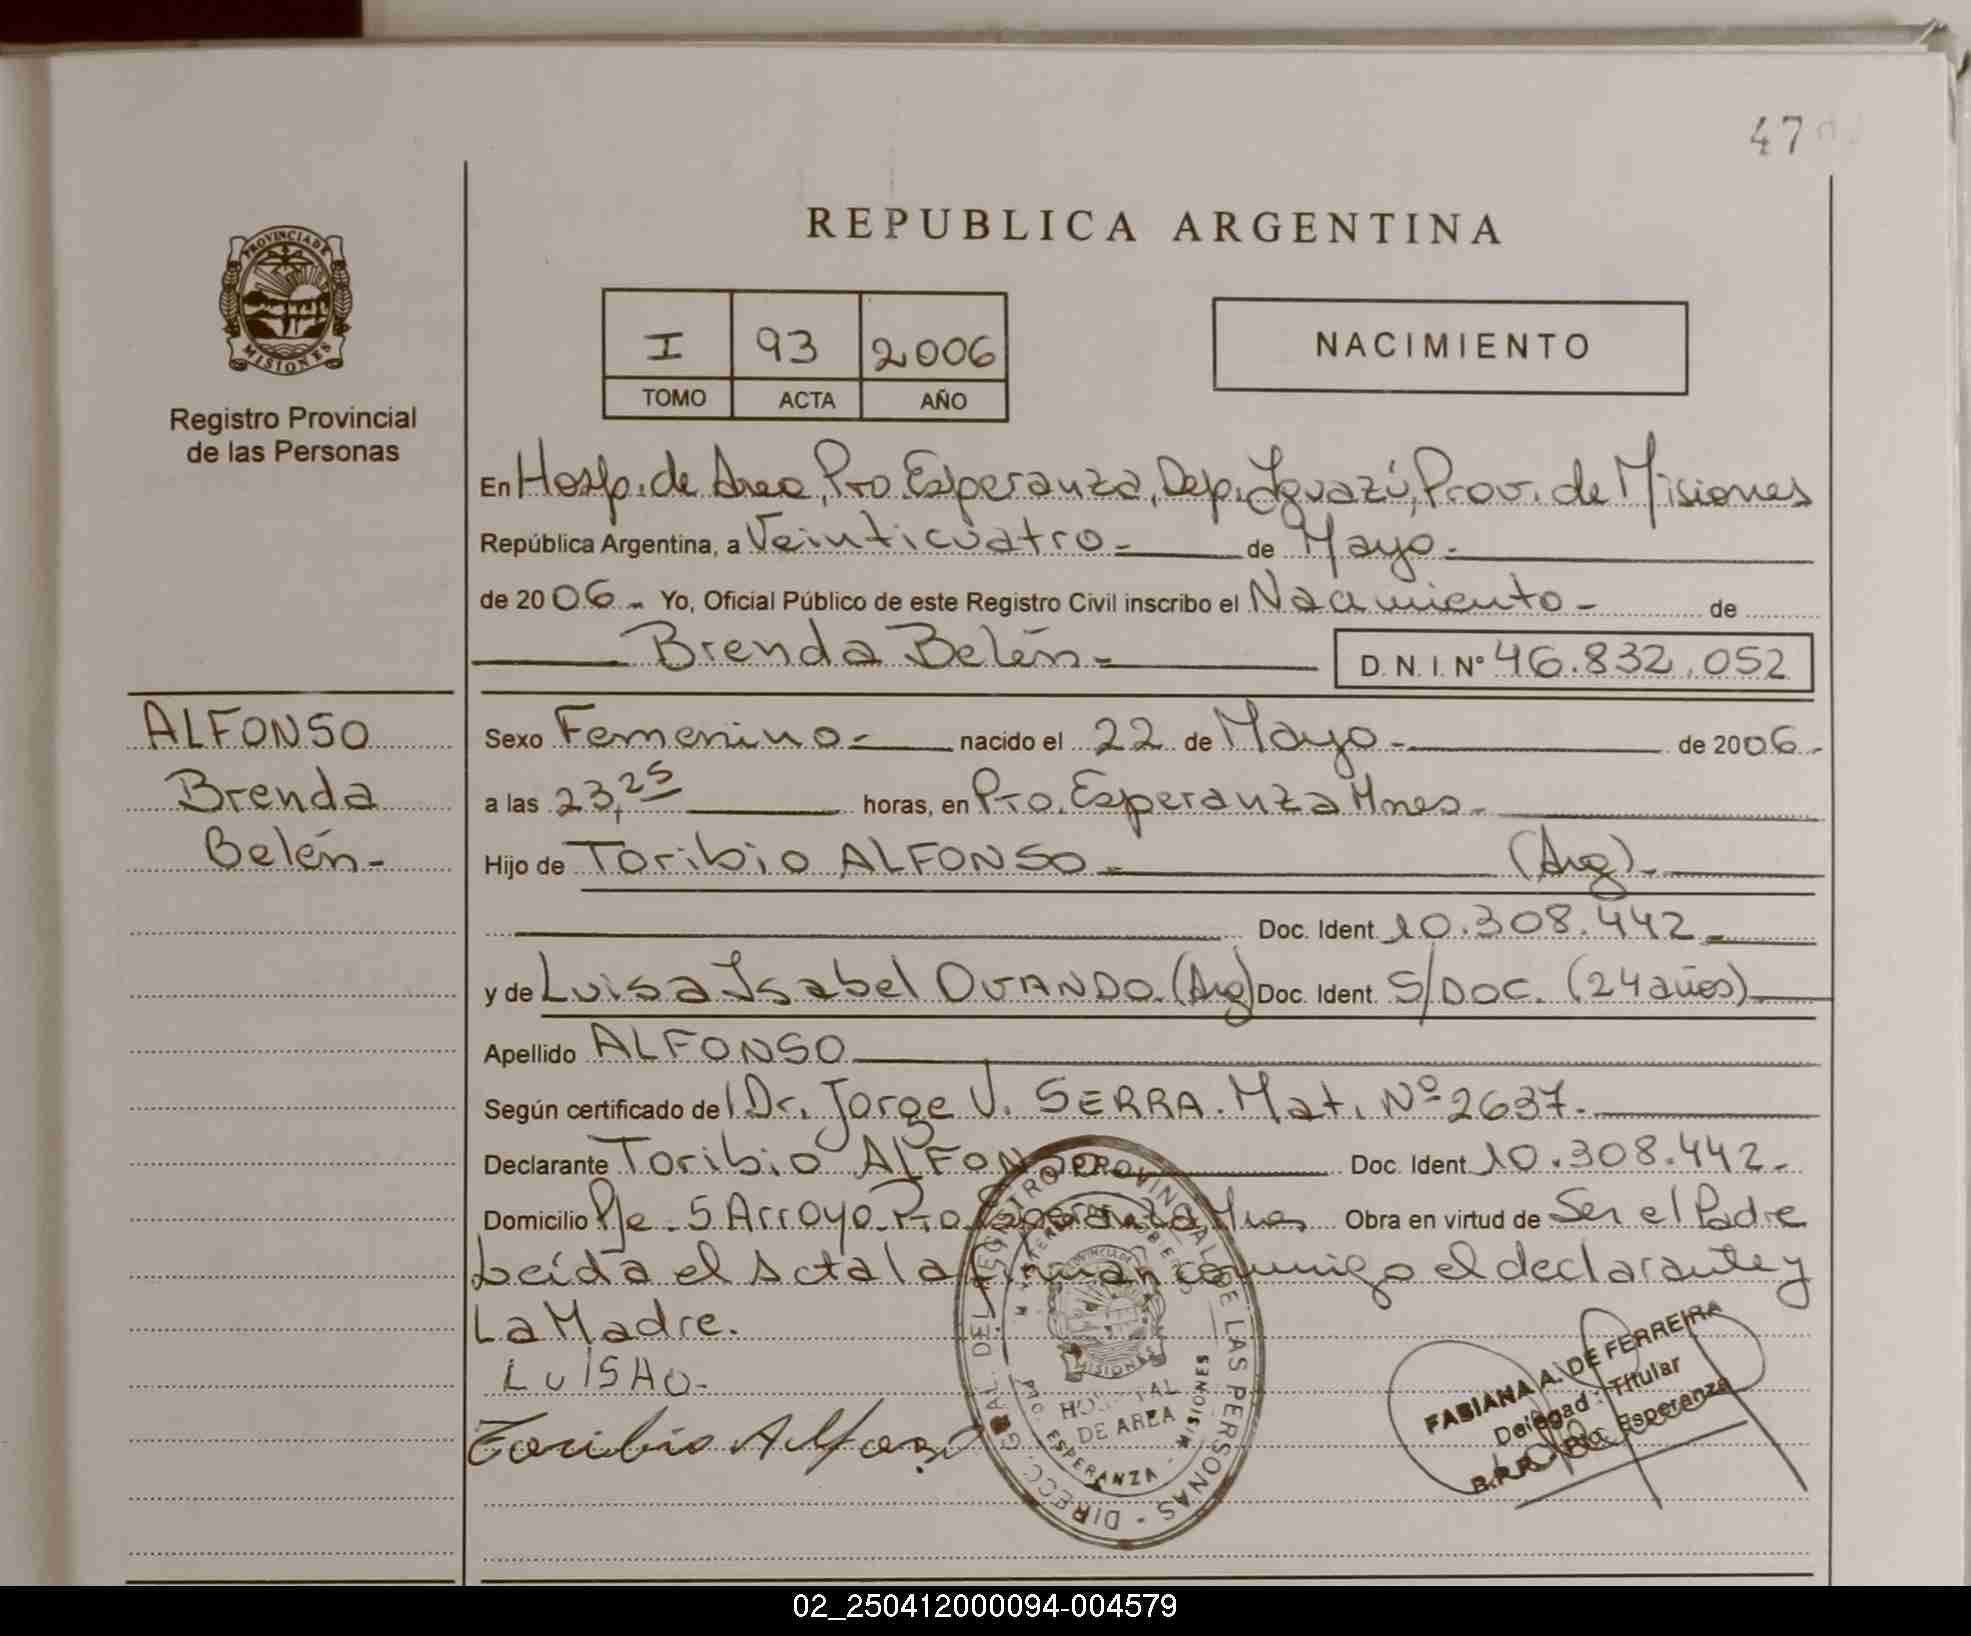 47
REPUBLICA ARGENTINA
PROVINCIA DE
MISIONES
Registro Provincial
de las Personas
I 93 2006
TOMO ACTA AÑO
NACIMIENTO
En Hosp. de Area, Pto. Esperanza, Dep. Iguazú, Prov. de Misiones
República Argentina, a Veinticuatro - de Mayo -
de 2006 - Yo, Oficial Público de este Registro Civil inscribo el Nacimiento - de
Brenda Belén - D. N. I. Nº 46.832.052
ALFONSO
Brenda
Belén -
Sexo Femenino - nacido el 22 de Mayo - de 2006 -
a las 23,25 horas, en Pto. Esperanza Mnes -
Hijo de Toribio ALFONSO - (Arg) -
Doc. Ident 10.308.442 -
y de Luisa Isabel OVANDO. (Arg) Doc. Ident. S/DOC. (24 años) -
Apellido ALFONSO
Según certificado del Dr. Jorge V. SERRA. Mat. Nº 2637. -
Declarante Toribio ALFONSO Doc. Ident 10.308.442 -
Domicilio Pje - 5 Arroyo - Pto. Esperanza, Mnes Obra en virtud de Ser el Padre
Leída el Acta la firman conmigo el declarante y
La Madre.
LUISAO -
Toribio Alfonso
DIRECC. GRAL. DEL REGISTRO PROVINCIAL DE LAS PERSONAS -
MISIONES
HOSPITAL
DE AREA
PTO. ESPERANZA - MISIONES
FABIANA A. DE FERREIRA
Delegad. Titular
R.P.P. Pto. Esperanza
02_250412000094-004579